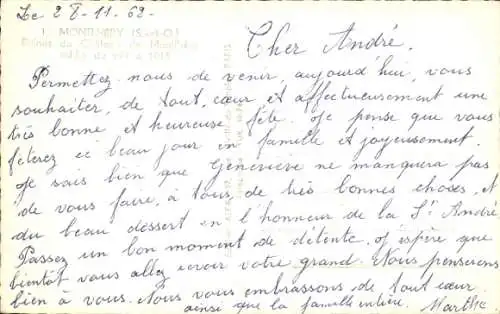 Le 28-11-62-
1. MONTLHÉRY (S.-et-O.)
Cher André.
Permettez nous de venir, aujourd'hui, vous
souhaiter, de tout cœur et affectueusement une
très bonne et heureuse fête. Je pense que vous
fêterez ce beau jour en famille et joyeusement.
Je sais bien que Geneviève ne manquera pas
de vous faire, à tous, de très bonnes choses, et
du beau dessert en l'honneur de la St André.
Passez un bon moment de détente. J'espère que
bientôt vous allez revoir votre grand. Nous penserons
bien à vous. Nous vous embrassons de tout cœur.
ainsi que la famille entière. Marthe